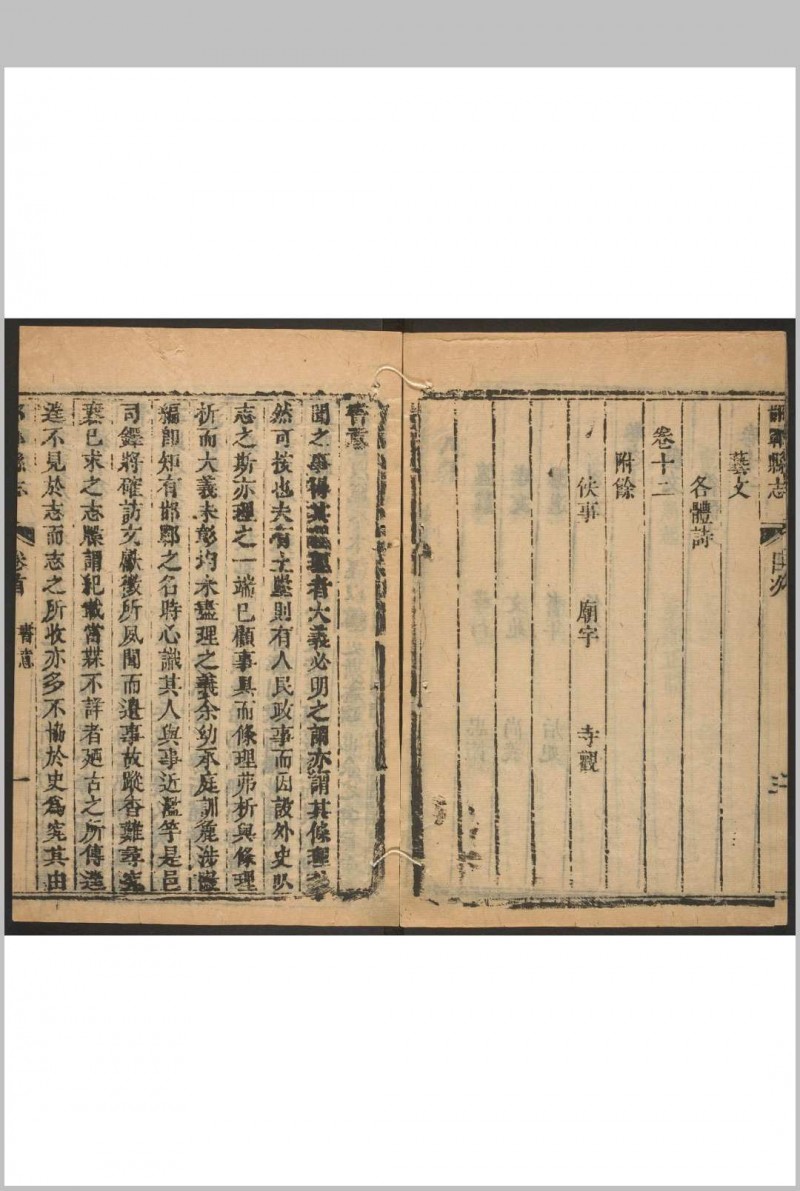 邯鄲縣志 目次 三
藝文
各體詩
卷十二
附餘
佚事 廟宇 寺觀
書意
聞之事得其理者大義必明之謂亦謂其條理
然可按也夫有土墜則有人民政事而因設外史以
志之斯亦理之一端已顧事具而條理弗析與條理
析而大義未彰均未盡理之義余幼承庭訓麄涉
編卽知有邯鄲之名時心識其人與事近濫竽是邑
司鐸將確訪文獻徵所風聞而遺事故蹤杳難尋究
衰已求之志牒謂紀載當蔑不詳者廼古之所傳遺
遺不見於志而志之所收亦多不協於史爲究其由
邯鄲縣志 卷首 書意 一